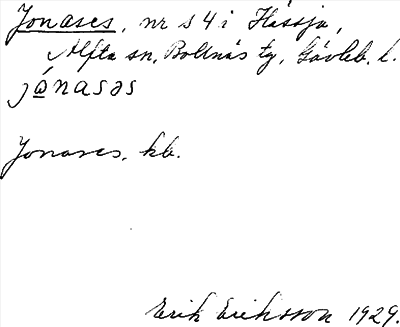 Jonases, nr s 4 i Hässja,
Alfta sn, Bollnäs tg, Gävleb. l.
jó̱nasəs
Jonases, kb.
Erik Eriksson 1929.